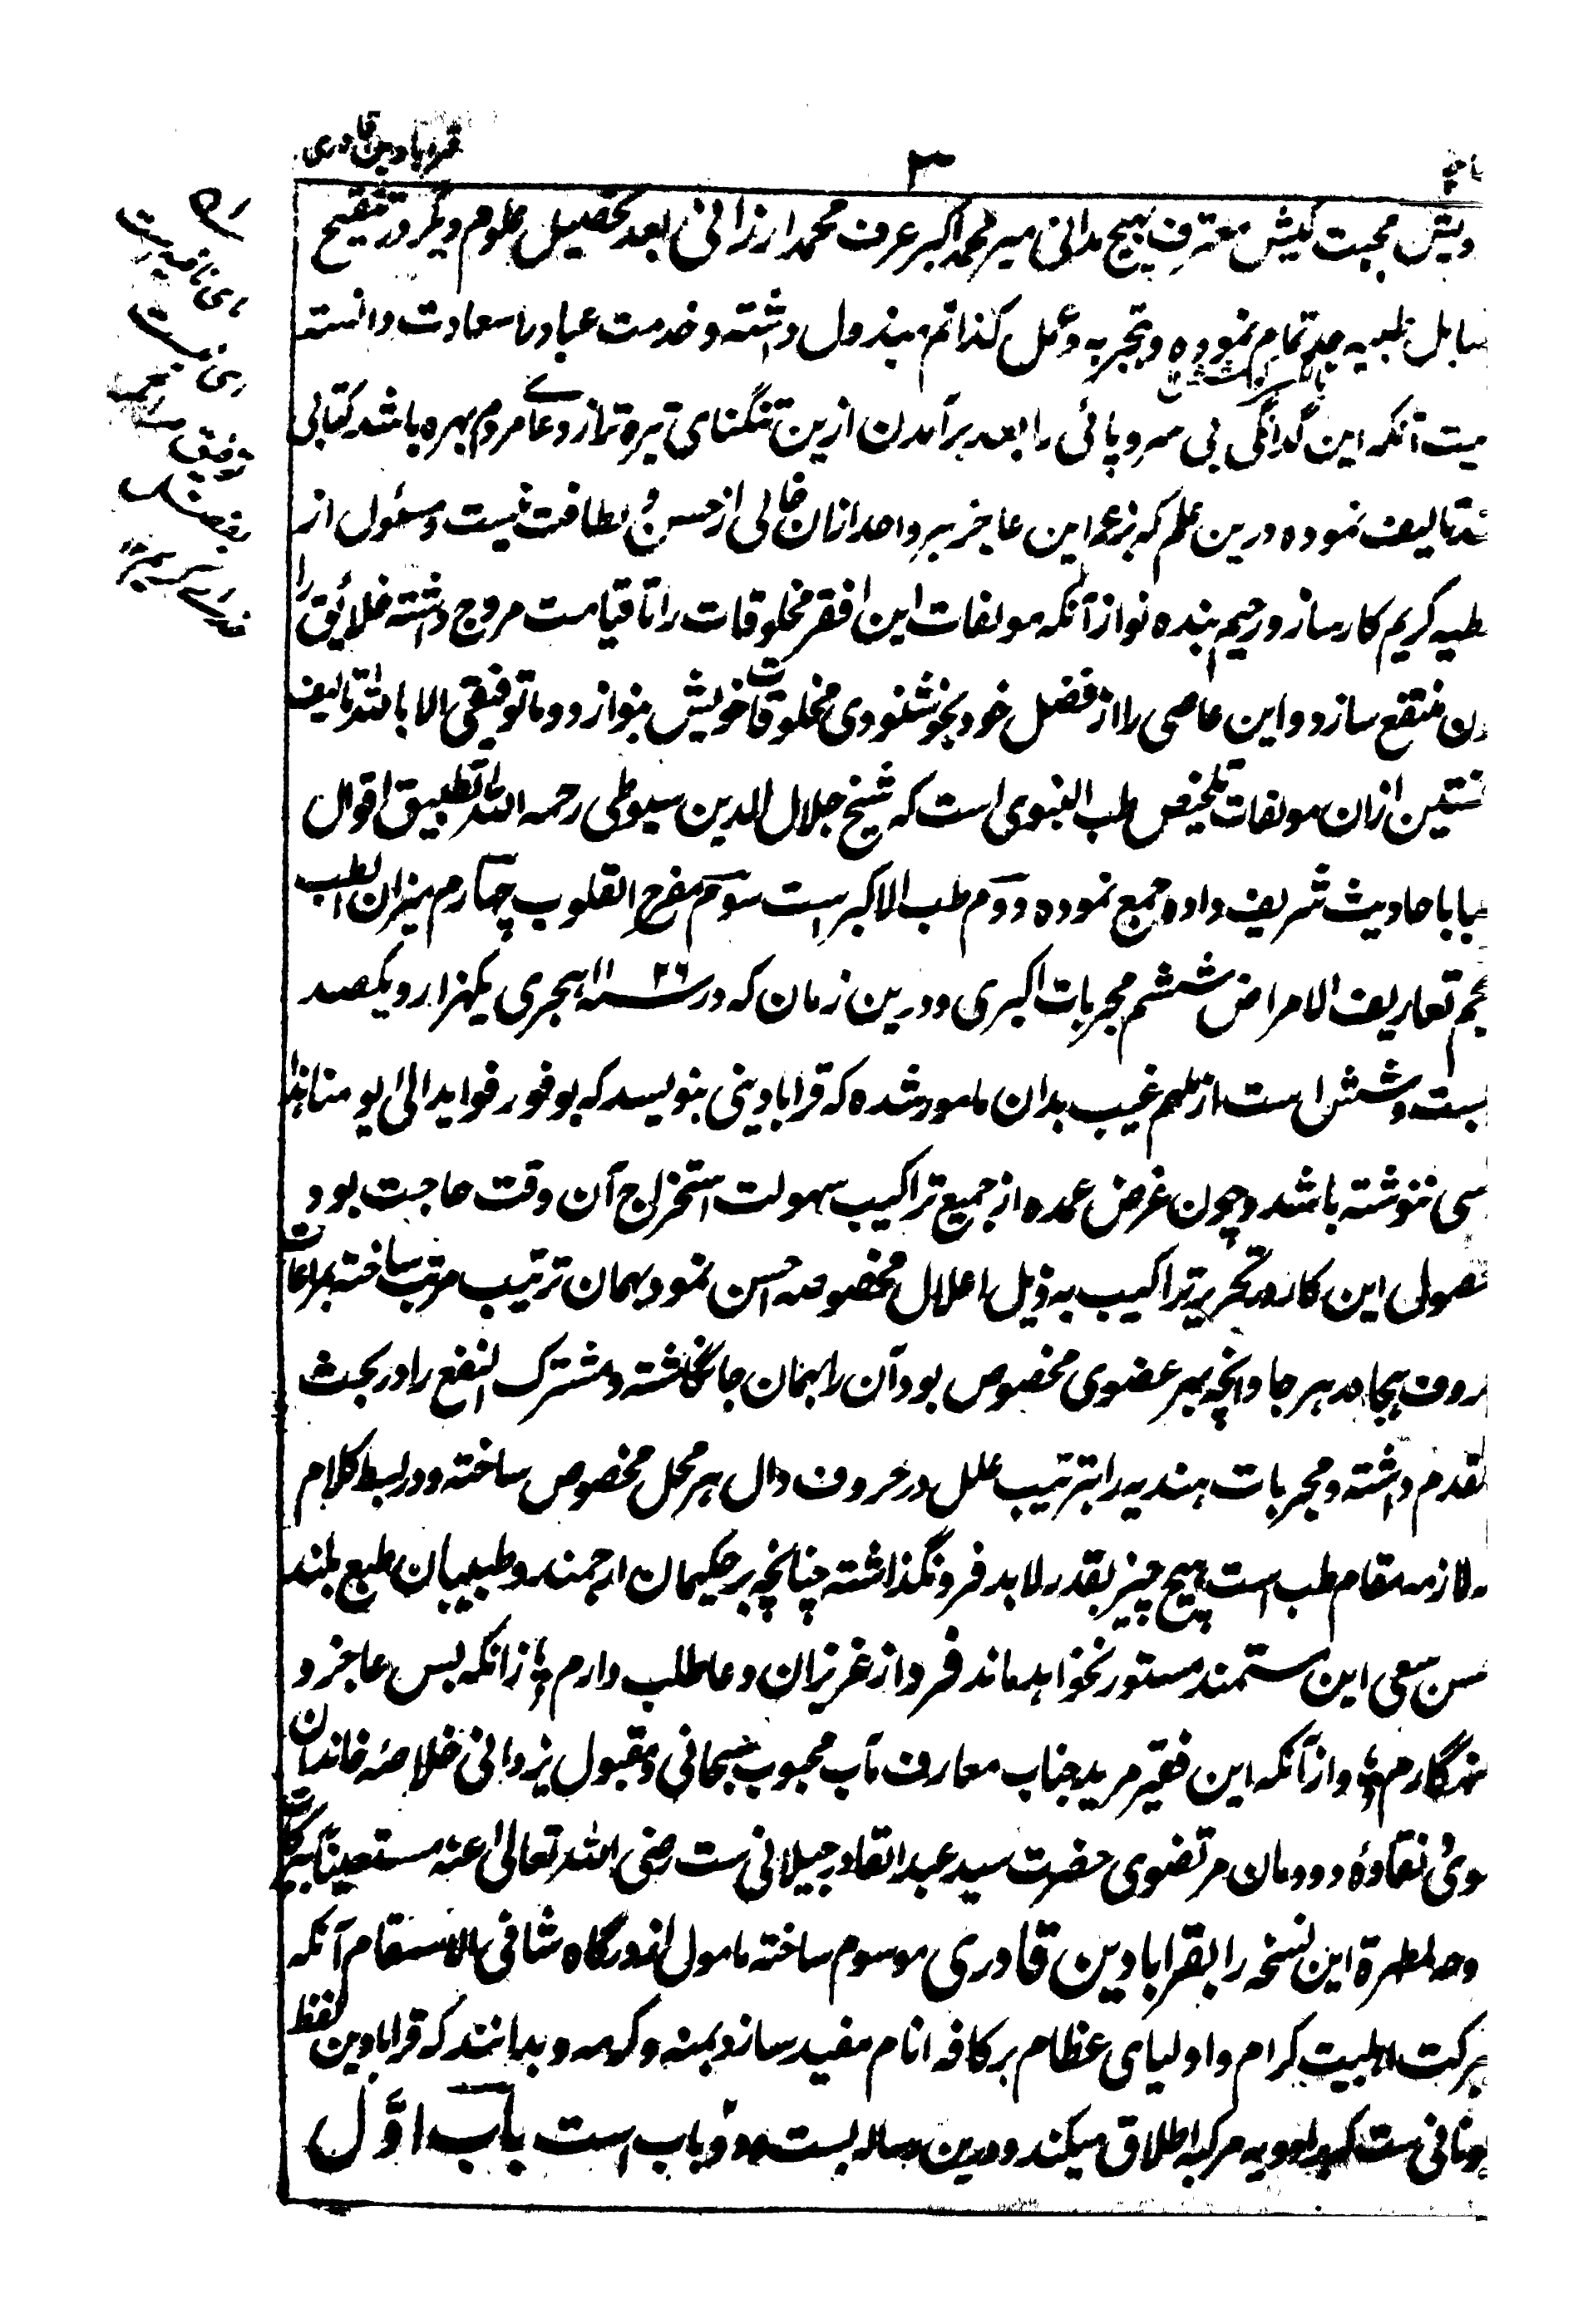 قرابادین قادری
۳
باچه
ویش محبت کیش معترف بہیچ مدانی میر محمد اکبر عرف محمد ارزانی بعد تحصیل علوم دیگر در تنقیح
سایل طبیه جد تمام نموده و تجربه و عمل کذاتم مبذول داشته و خدمت عباد را سعادت دانسته
میت آنکه این گدائگی بی سر و پائی را بعد برآمدن ازین تنگنای تیره تر از دعاے مردم بهره باشد کتابی
ند تالیف نموده درین علم که بزعم این عاجز هر واحد ازان خالی از حسن و لطافت نیست و مسئول از
طیه کریم کارساز و رحیم بنده نواز آنکه مولفات این افقر مخلوقات را تا قیامت مروج داشته خلائق را
ن منتفع سازد و این عاصی را از فضل خود بخوشنودی مخلوقات خویش بنوازد و ما توفیقی الا بالله تالیف
نستین ازان مولفات تلخیص طب النبوی است که شیخ جلال الدین سیوطی رحمه الله تطبیق اقوال
با باحادیث شریف داده جمع نموده دوم طب الاکبر است سوم مفرح القلوب چهارم میزان الطب
نجم تعاریف الامراض ششم مجربات اکبری و درین زمان که در سنه ۱۱۲۶ هجری یکهزار و یکصد
بست و شش است از ملهم غیب بدان مامور شده که قرابادینی بنویسد که بوفور فواید الی یومنا هذا
سی ننوشته باشد و چون غرض عمده از جمیع تراکیب سهولت استخراج آن وقت حاجت بود
صولی این کار در تحریر تراکیب به ذیل اعلال مخصوصه احسن نمود بهمان ترتیب مرتب ساخته بمراعات
روف هجا در هر جا و انچه بهر عضوی مخصوص بود آن را بهمان جا نگاشته و مشترک النفع را در بحث
تقدم داشته و مجربات هندیه را بترتیب علل در حروف دال هر محل مخصوص ساخته و در بسط کلام
ه لازمه مقام طب است هیچ چیز بقدر لابد فرو نگذاشته چنانچه بر حکیمان ارجمند و طبیبان طبع بلند
سن سعی این مستمند مستور نخواهد ماند فرد از عزیزان دعا طلب دارم ؛ زانکه بس عاجز و
نهگارم ؛ و از آنکه این فقیر مرید جناب معارف مآب محبوب سبحانی و مقبول یزدانی خلاصۀ خاندان
وی نقاوۀ دودمان مرتضوی حضرت سید عبد القادر جیلانی ست رضی الله تعالی عنه مستعیناً ببرکات
وحه المطهرة این نسخه را بقرابادین قادری موسوم ساخته مامول از درگاه شافی الاسقام آنکه
برکت اهلبیت کرام و اولیای عظام بر کافه انام مفید سازد بمنه و کرمه و بدانند که قرابادین لفظ
یونانی ست که بر ادویه مرکبه اطلاق میکنند و درین رساله بست و دو باب است باب اوّل